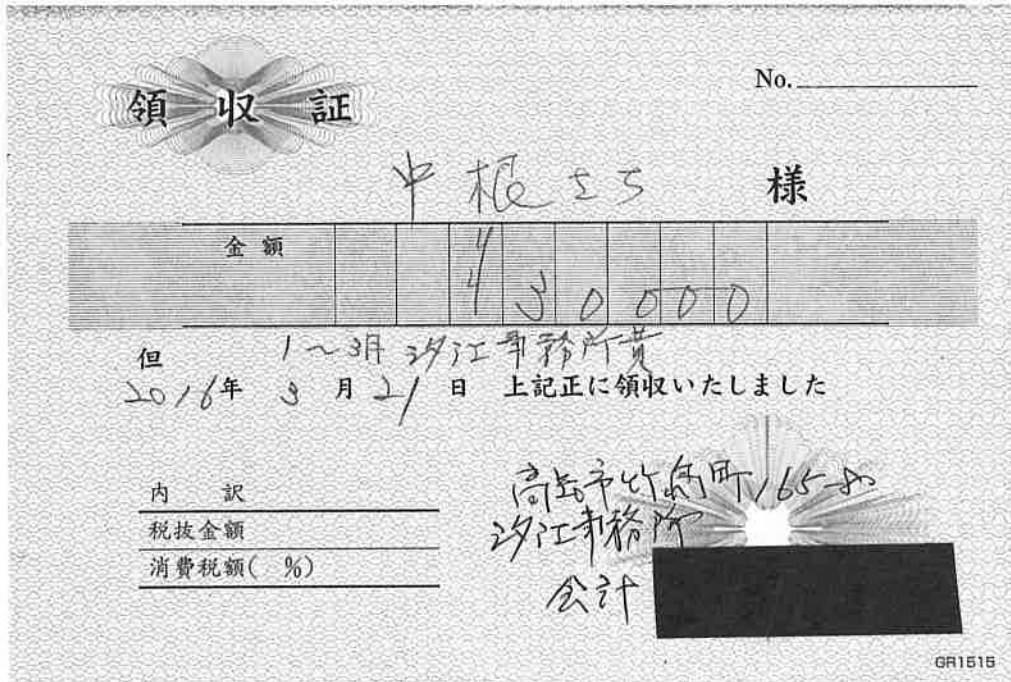 領収証
No.
中根さち 様
金額 ¥30000
但 1～3月 汐江事務所費
2016年 3月21日 上記正に領収いたしました
内訳
税抜金額
消費税額( %)
高知市竹島町165-
汐江事務所
会計
GR1515